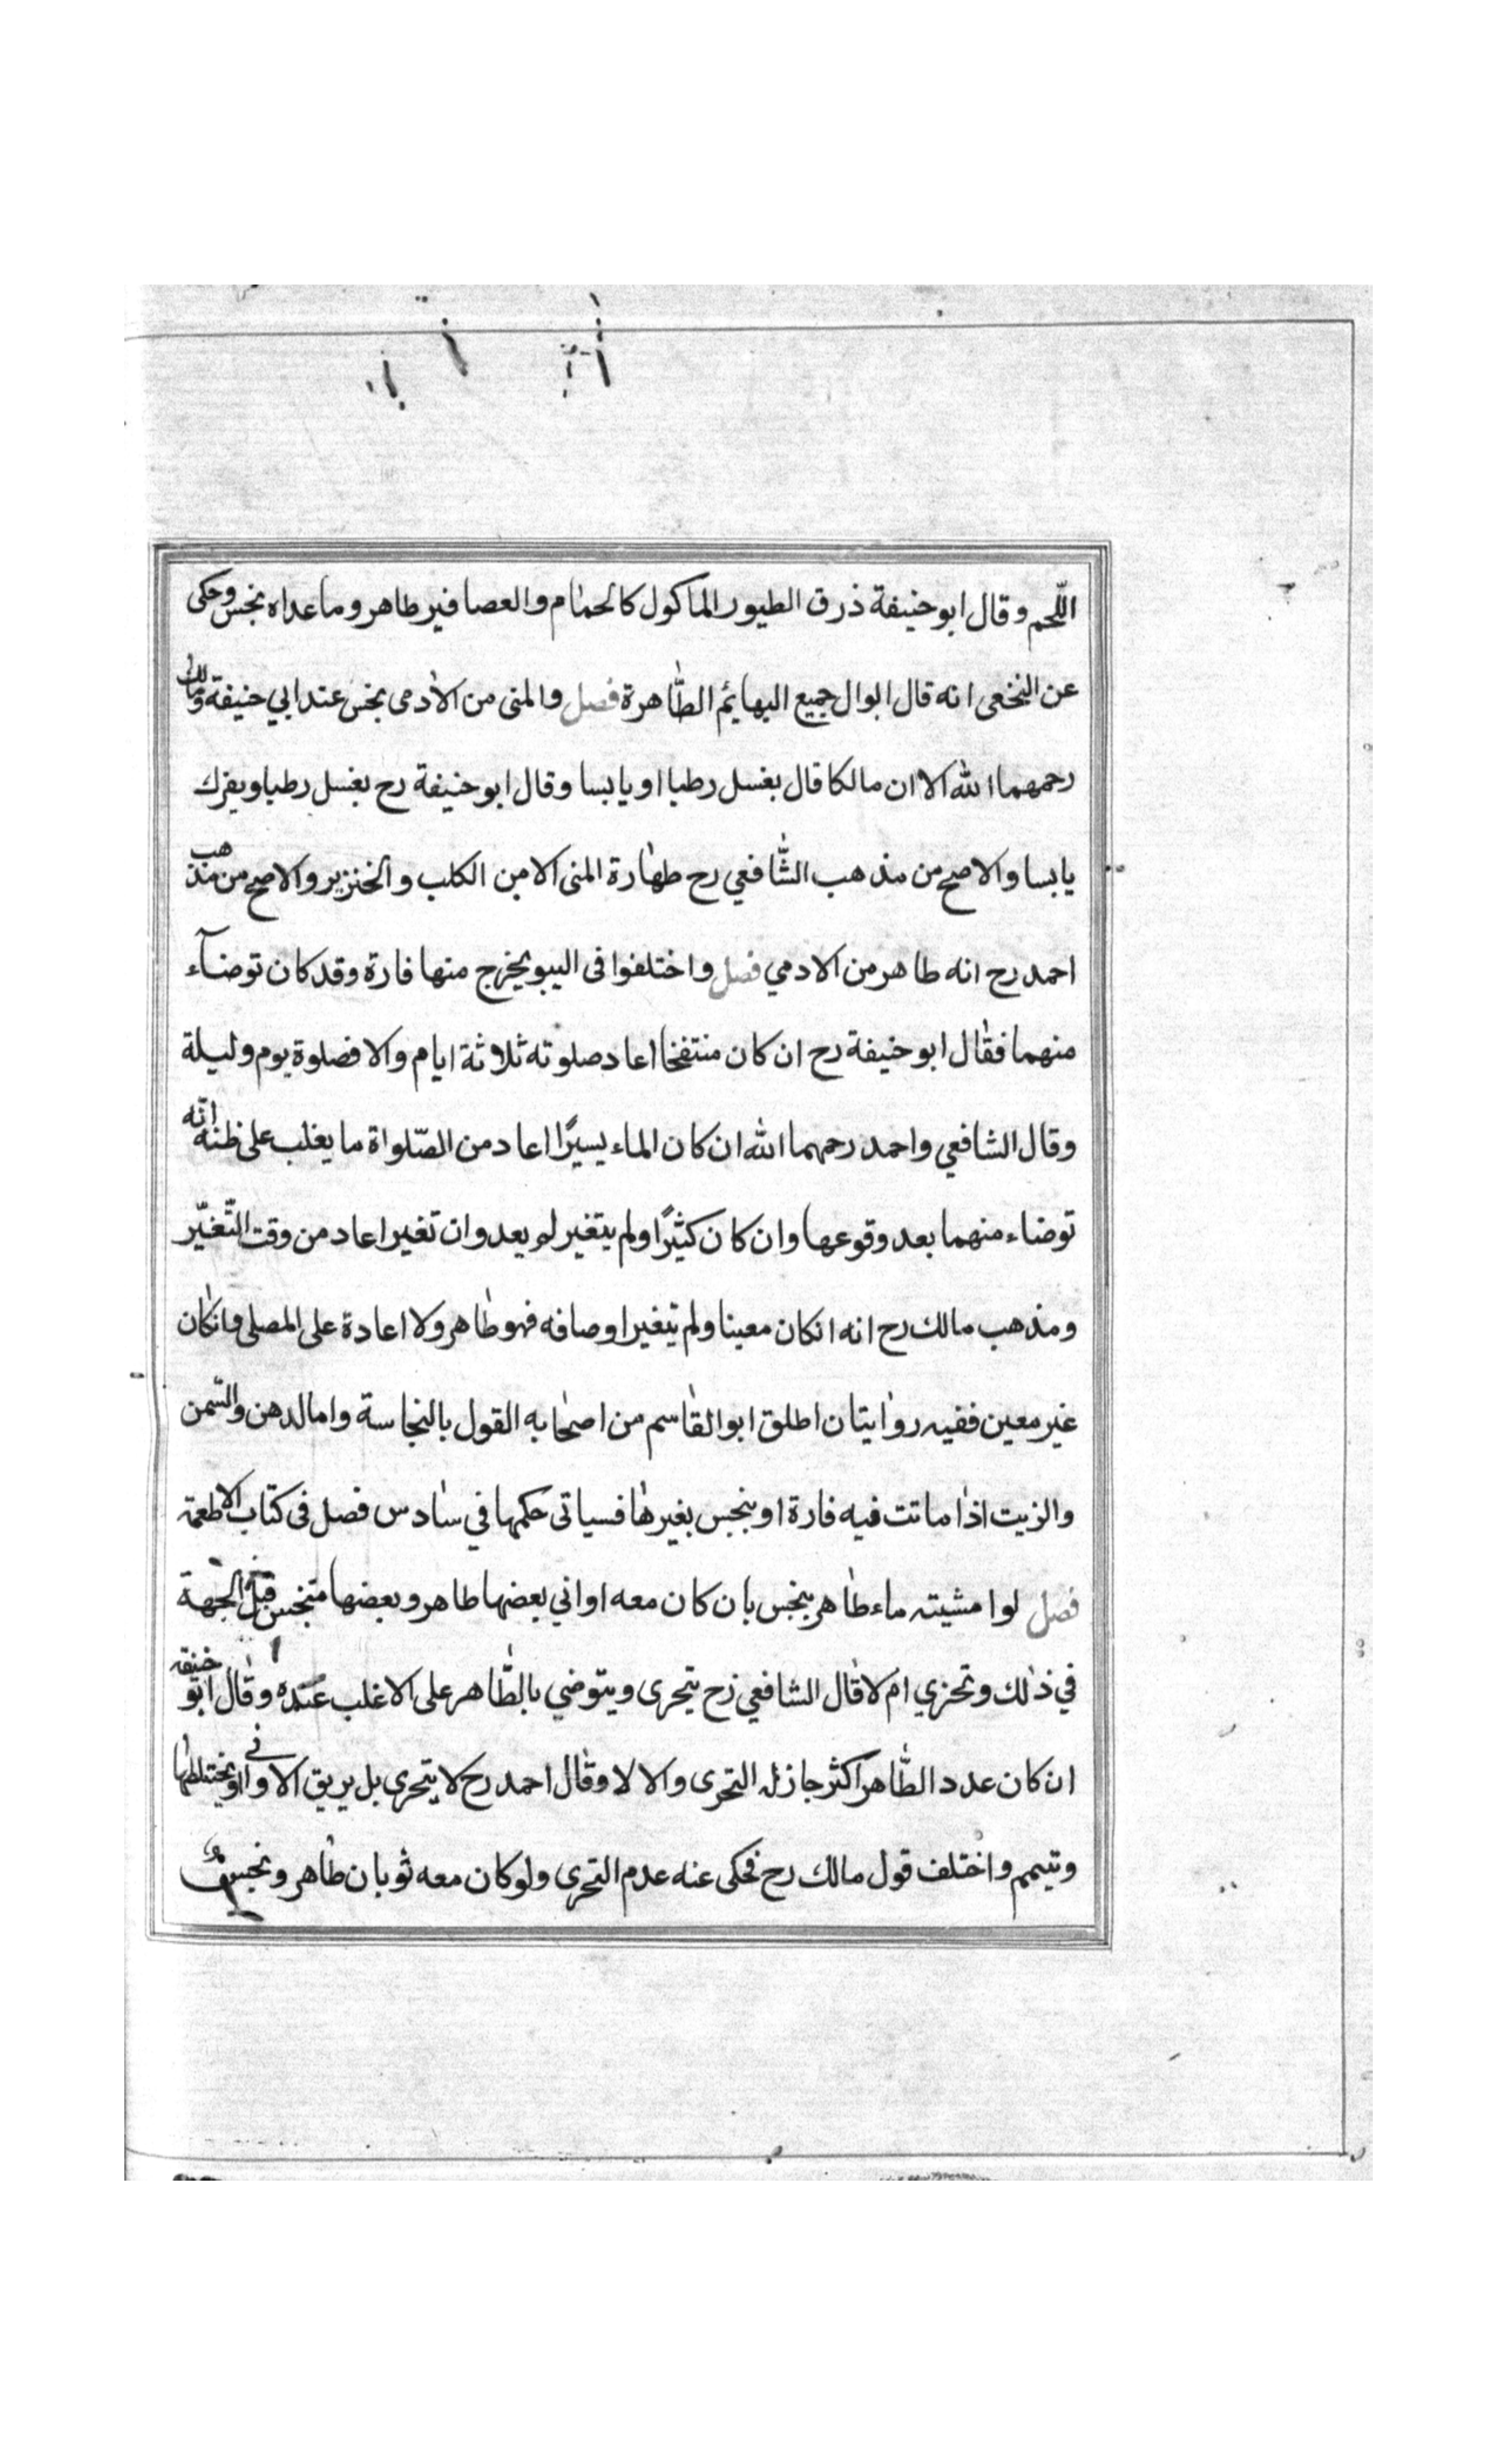 اللّحم وقال ابو حنيفة ذرق الطيور الماكول كالحمام والعصافير طاهر وما عداه نجس وحكى
عن النخعى انه قال ابوال جميع البهايم الطّاهرة فصل والمنى من الادمى نجس عند ابي حنيفة ومالك
رحمهما الله الا ان مالكا قال يغسل رطبا او يابسا وقال ابو حنيفة رح يغسل رطبا ويفرك
يابسا والاصح من مذهب الشّافعي رح طهارة المنى الا من الكلب والخنزير والاصح من مذهب
احمد رح انه طاهر من الادمي فصل واختلفوا فى البير يخرج منها فارة وقد كان توضآء
منهما فقال ابو حنيفة رح ان كان منتفخا اعاد صلوته ثلاثة ايام والا فصلوة يوم وليلة
وقال الشافعي واحمد رحمهما الله ان كان الماء يسيرًا اعاد من الصّلواة ما يغلب على ظنه انّه
توضاء منهما بعد وقوعها وان كان كثيرًا ولم يتغير لم يعد وان تغير اعاد من وقت التّغيّر
ومذهب مالك رح انه انكان معينا ولم يتغير اوصافه فهو طاهر ولا اعادة على المصلى وانكان
غير معين ففيه روايتان اطلق ابو القاسم من اصحابه القول بالنجاسة واما الدهن والسّمن
والزيت اذا ماتت فيه فارة او ينجس بغيرها فسياتى حكمها في سادس فصل فى كتاب الاطعمة
فصل لو امشيته ماء طاهر بنجس بان كان معه اواني بعضها طاهر وبعضها متنجس الجهة
في ذلك وتحزي ام لا قال الشافعي رح يتحرى ويتوضي بالطّاهر على الاغلب عنده وقال ابو حنيفه
ان كان عدد الطّاهر اكثر جاز له التحرى والا لا وقال احمد رح لا يتحرى بل يريق الاوانى او يختلطها
وتيمم واختلف قول مالك رح فحكى عنه عدم التحرى ولو كان معه ثوبان طاهر ونجس